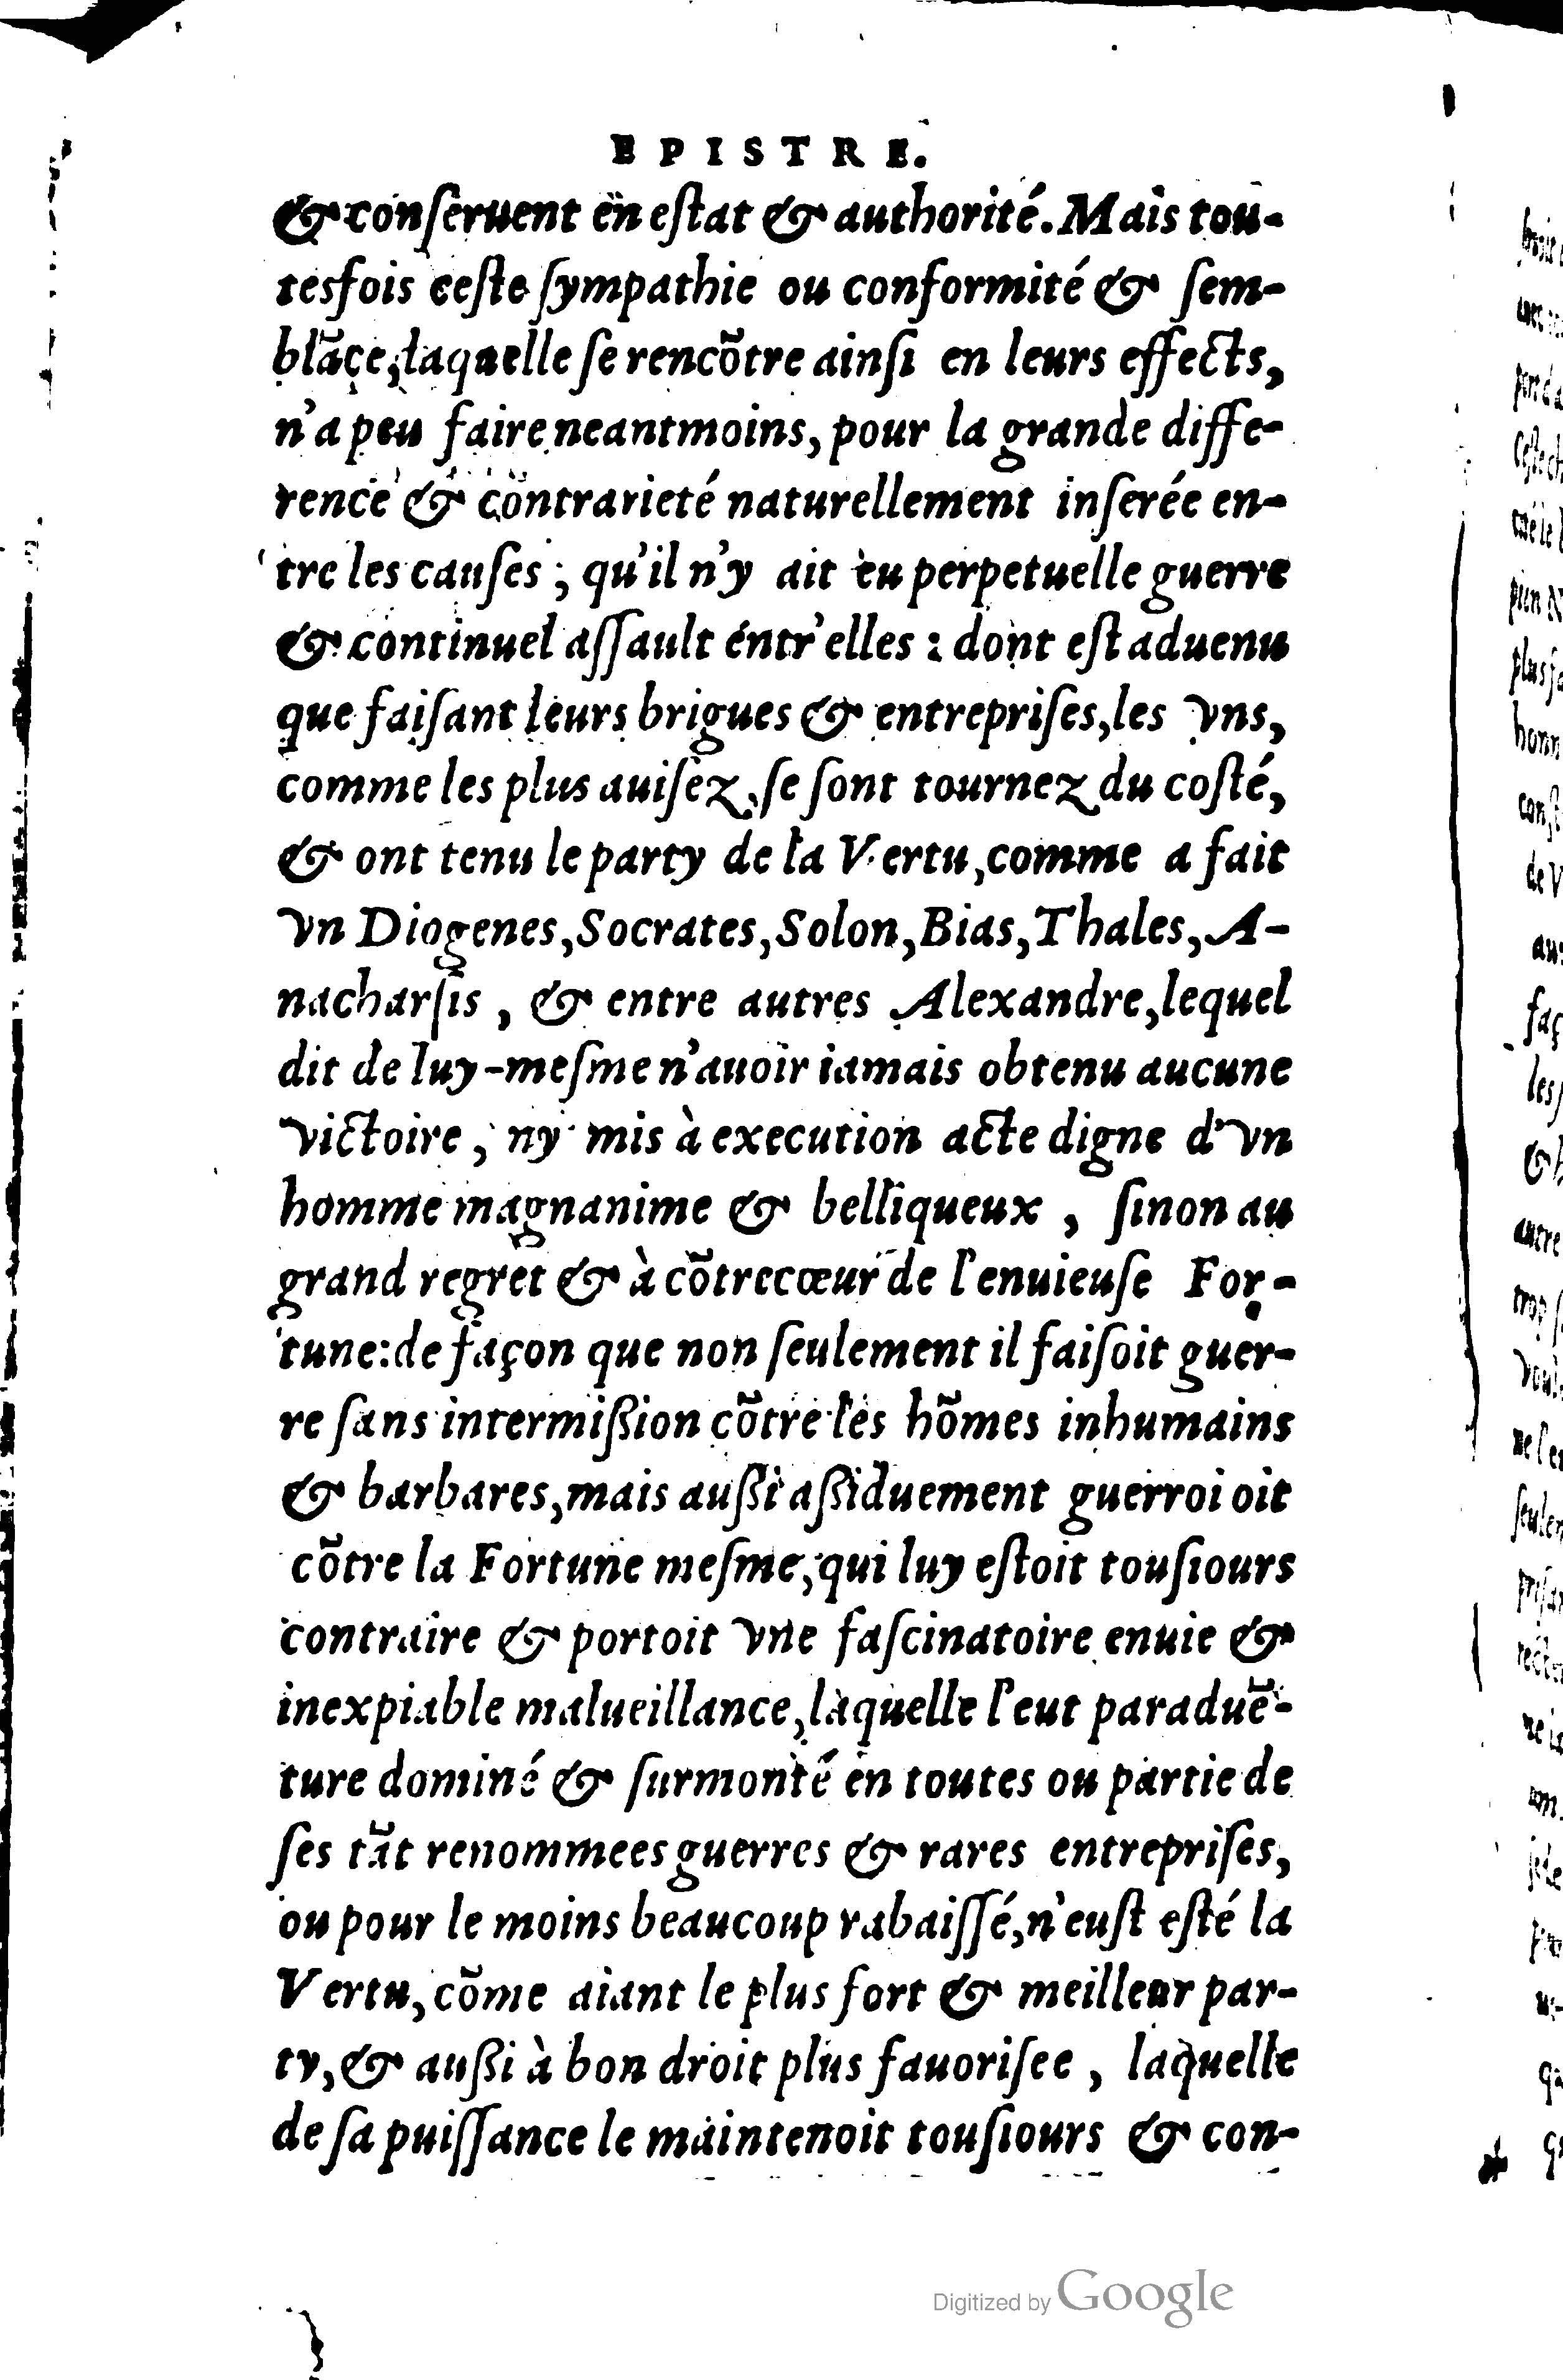 EPISTRE.
& conſeruent en eſtat & authorité. Mais tou-
tesfois ceſte ſympathie ou conformité & ſem-
blãçe, laquelle ſe rencõtre ainſi en leurs effects,
n'a peu faire neantmoins, pour la grande diffe-
rence & contrarieté naturellement inſerée en-
tre les cauſes ; qu'il n'y ait eu perpetuelle guerre
& continuel aſſault entr'elles : dont eſt aduenu
que faiſant leurs brigues & entrepriſes, les vns,
comme les plus auiſez, ſe ſont tournez du coſté,
& ont tenu le party de la Vertu, comme a fait
vn Diogenes, Socrates, Solon, Bias, Thales, A-
nacharſis , & entre autres Alexandre, lequel
dit de luy-meſme n'auoir iamais obtenu aucune
victoire , ny mis à execution acte digne d'vn
homme magnanime & belliqueux , ſinon au
grand regret & à cõtrecœur de l'enuieuſe For-
tune: de façon que non ſeulement il faiſoit guer-
re ſans intermißion cõtre les hõmes inhumains
& barbares, mais außi aßiduement guerroioit
cõtre la Fortune meſme, qui luy eſtoit touſiours
contraire & portoit vne faſcinatoire enuie &
inexpiable malueillance, laquelle l'eut paraduẽ-
ture dominé & ſurmonté en toutes ou partie de
ſes tãt renommees guerres & rares entrepriſes,
ou pour le moins beaucoup rabaiſſé, n'euſt eſté la
Vertu, cõme aiant le plus fort & meilleur par-
ty, & außi à bon droit plus fauoriſee , laquelle
de ſa puiſſance le maintenoit touſiours & con-
Digitized by Google